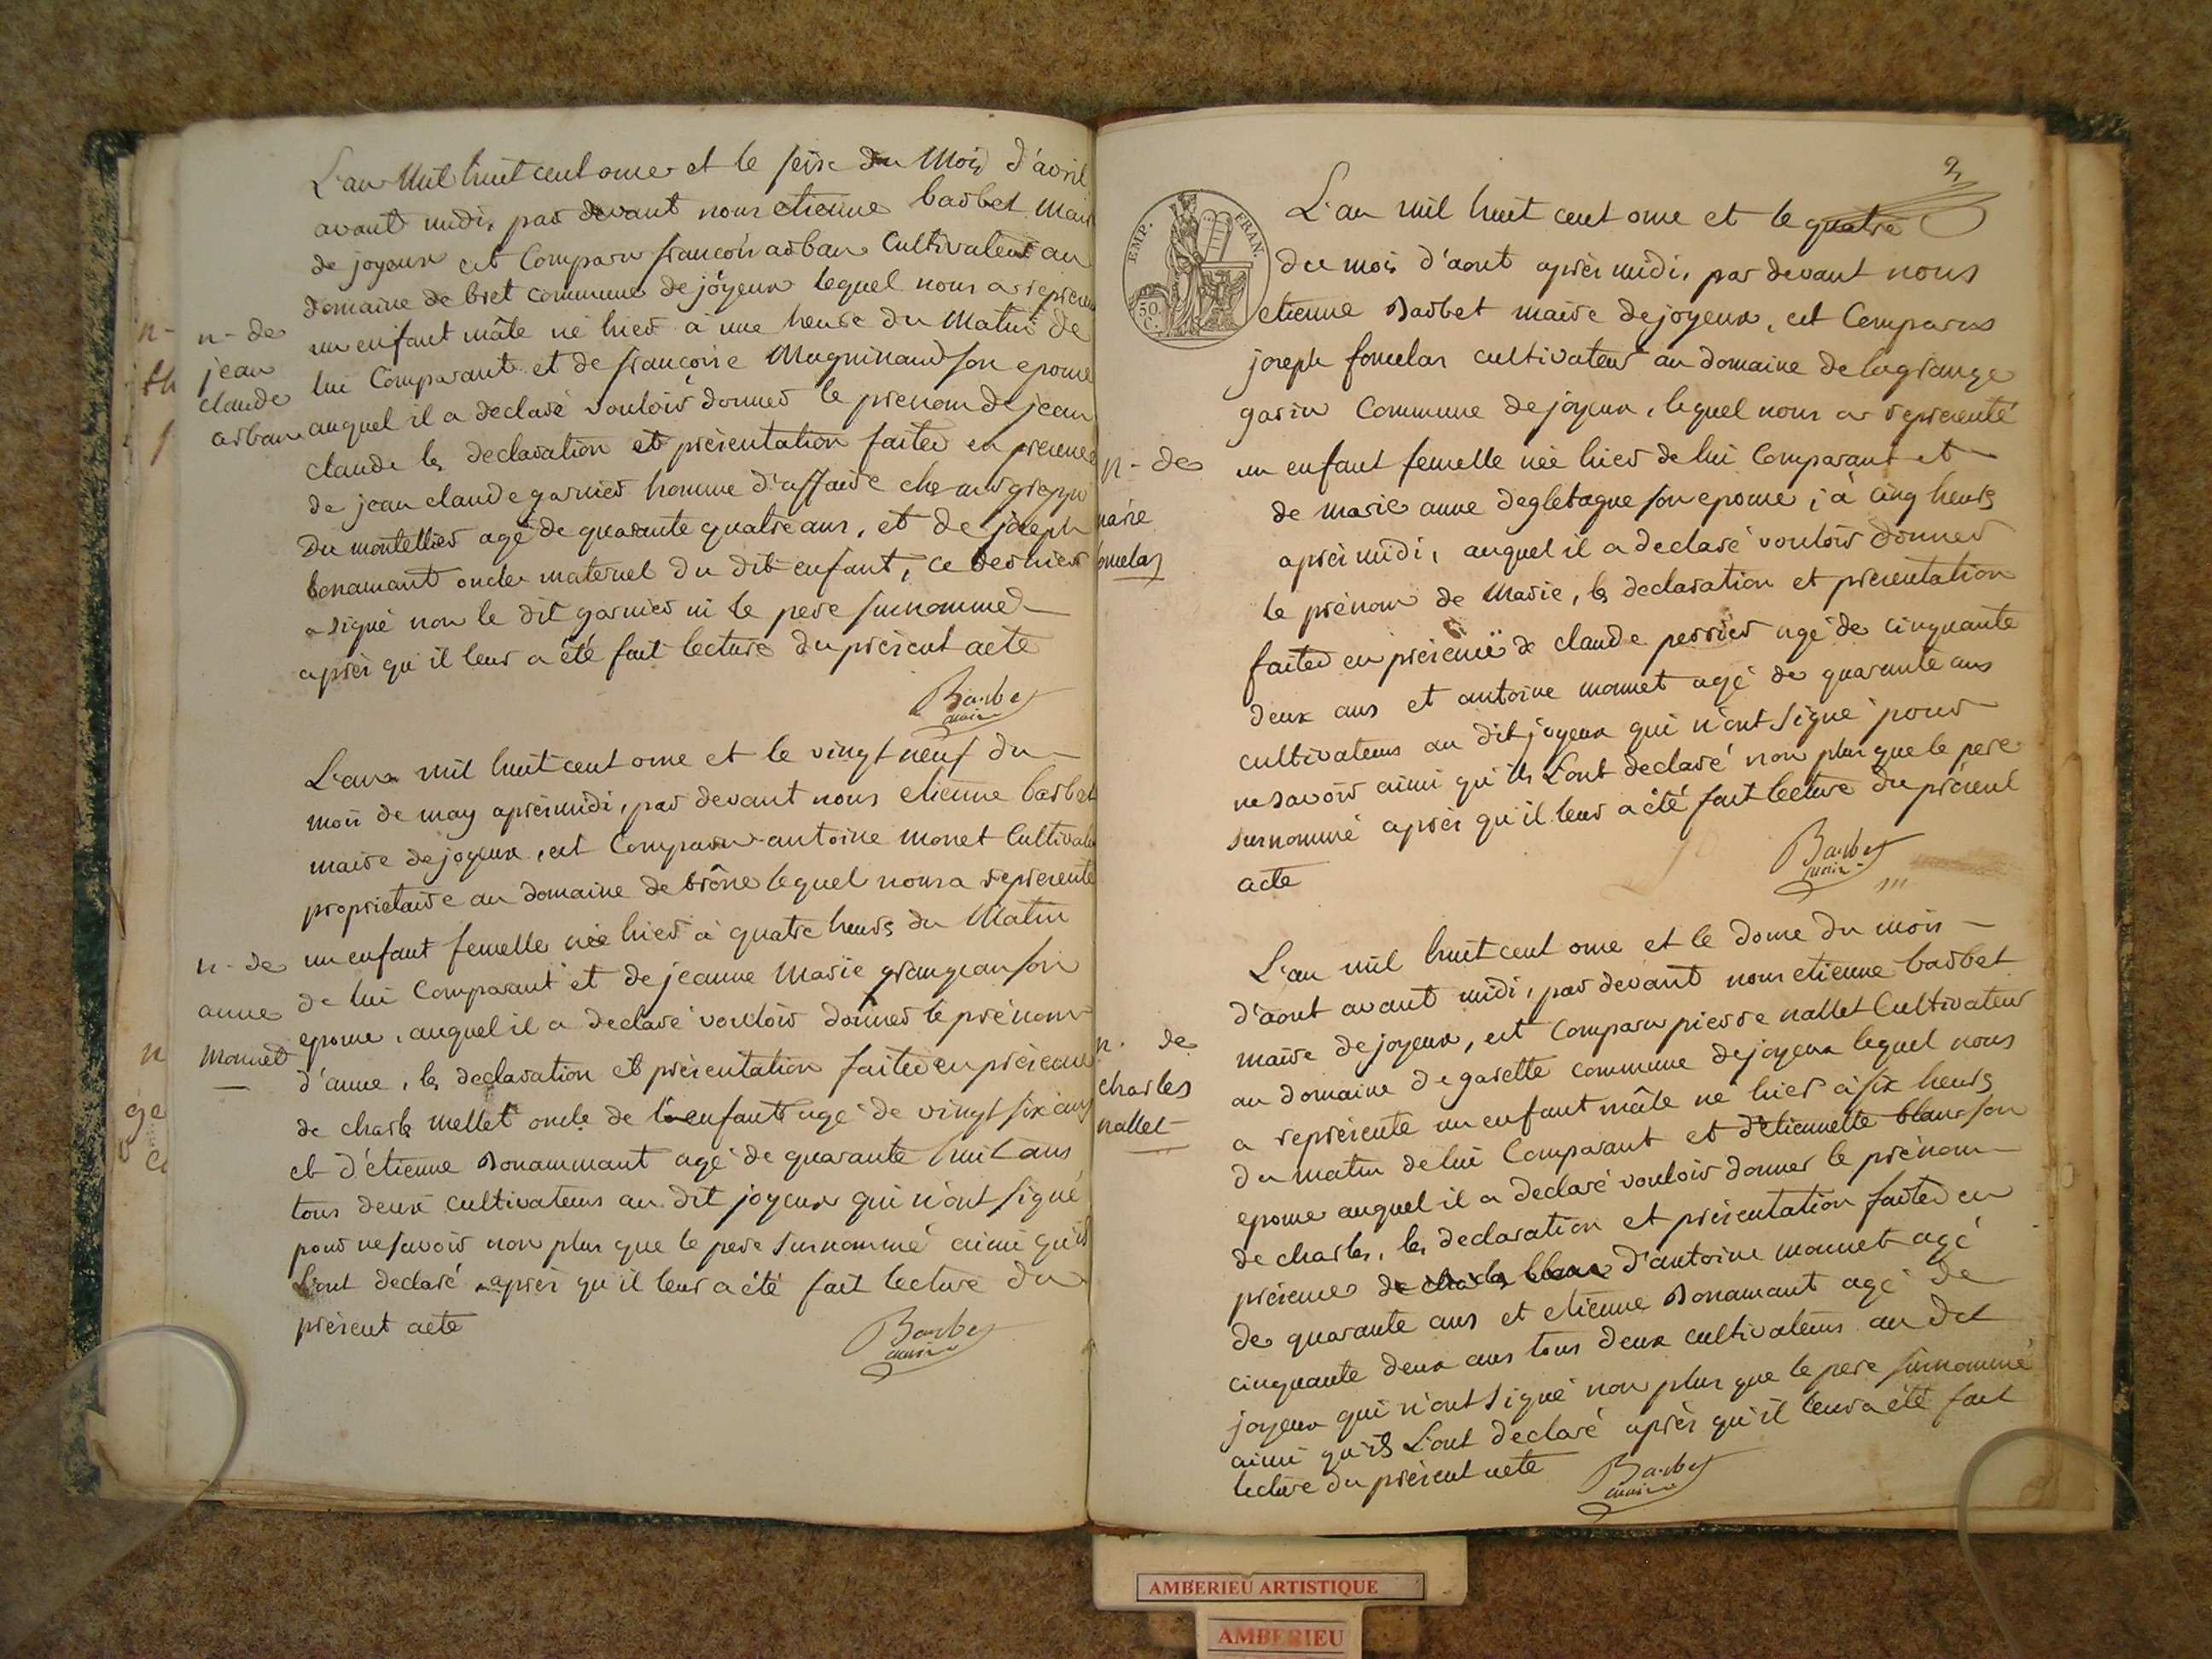 L'an Mil huit cent onze et le seize du Mois d'avril
avant midi, par devant nous etienne barbet Mair
de joyeux est Comparu françois arban Cultivateur au
domaine de bret commune de joyeux lequel nous a represen
n - de
jean
claude
arban
un enfant mâle né hier à une heure du Matin de
lui Comparant et de françoise Muguinaud son epouse
auquel il a declaré vouloir donner le prenom de jean
claude les declaration et présentation faites en presence
de jean claude garnier homme d'affaire chez
du montellier agé de quarante quatre ans, et de joseph
bonamant oncle maternel du dit enfant, ce dernier
a signé non le dit garnier ni le pere surnommé
après qu'il leur a été fait lecture du présent acte
Barbet
maire
L'an mil huit cent onze et le vingt neuf du
mois de may après midi, par devant nous etienne barbet
maire de joyeux, est Comparu antoine monet Cultivate
proprietaire au domaine de brône lequel nous a representé
n - de
anne
Monnet
un enfant femelle née hier à quatre heures du Matin
de lui Comparant et de jeanne Marie grangean son
epouse, auquel il a declaré vouloir donner le prénom
d'anne, les declaration et présentation faites en présence
de charles mellet oncle de l'enfant agé de vingt six ans
et d'étienne Bonammant agé de quarante huit ans
tous deux cultivateurs au dit joyeux qui n'ont signé
pour ne savoir non plus que le pere surnommé ainsi qu'ils
L'ont declaré après qu'il leur a été fait lecture du
présent acte
Barbet
maire
2
EMP. FRAN.
50 C.
L'an mil huit cent onze et le quatre
du mois d'aout après midi, par devant nous
etienne Barbet maire de joyeux, est Comparus
joseph fomelas cultivateur au domaine de lagrange
garin Commune de joyeux, lequel nous a representé
n - de
marie
omelas
un enfant femelle née hier de lui Comparant et
de marie anne degletagne son epouse, à cinq heures
après midi, auquel il a declaré vouloir donner
le prénom de Marie, les declaration et présentation
faites en présence de claude perrier agé de cinquante
deux ans et antoine monnet agé de quarante ans
cultivateurs au dit joyeux qui n'ont signé pour
ne savoir ainsi qu'ils L'ont declaré non plus que le pere
surnommé après qu'il leur a été fait lecture du présent
acte
Barbet
maire
L'an mil huit cent onze et le douze du mois
d'aout avant midi, par devant nous etienne barbet
maire de joyeux, est Comparu pierre nallet Cultivateur
n. de
charles
nallet
au domaine de garette commune de joyeux lequel nous
a représenté un enfant mâle né hier à six heures
du matin de lui Comparant et d'étiennette blanc son
epouse auquel il a declaré vouloir donner le prénom
de charles, les declaration et présentation faites en
présence de charles blanc d'antoine monnet agé
de quarante ans et etienne Bonamant agé de
cinquante deux ans tous deux cultivateurs au dit
joyeux qui n'ont signé non plus que le pere surnommé
ainsi qu'ils L'ont declaré après qu'il leur a été fait
lecture du présent acte
Barbet
maire
AMBERIEU ARTISTIQUE
AMBERIEU